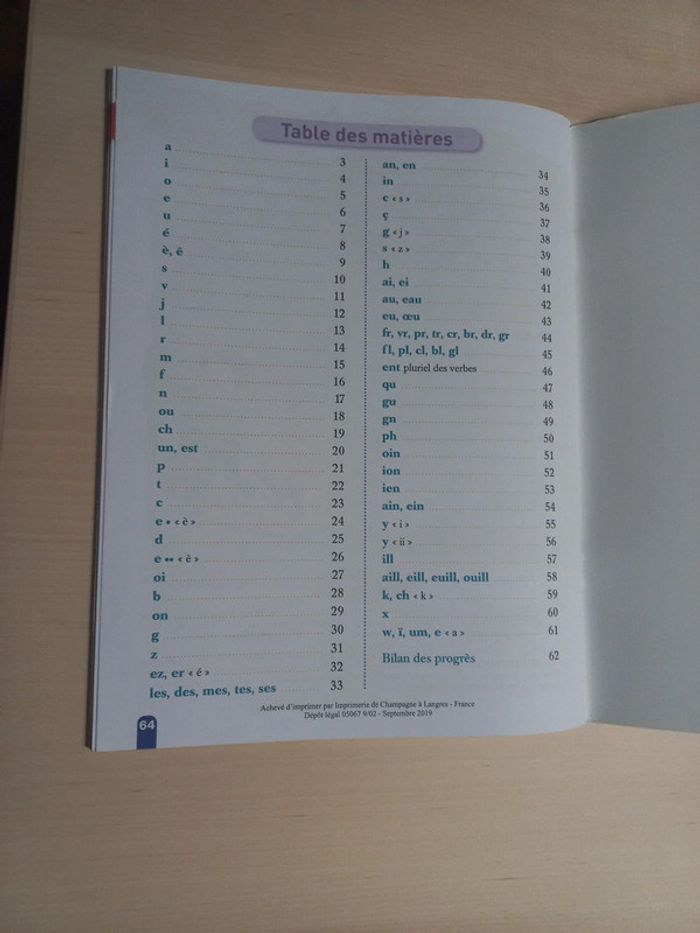 Table des matières
a 3
i 4
o 5
e 6
u 7
é 8
è, ê 9
s 10
v 11
j 12
l 13
r 14
m 15
f 16
n 17
ou 18
ch 19
un, est 20
p 21
t 22
c 23
e • « è » 24
d 25
e •• « è » 26
oi 27
b 28
on 29
g 30
z 31
ez, er « é » 32
les, des, mes, tes, ses 33
an, en 34
in 35
c « s » 36
ç 37
g « j » 38
s « z » 39
h 40
ai, ei 41
au, eau 42
eu, œu 43
fr, vr, pr, tr, cr, br, dr, gr 44
fl, pl, cl, bl, gl 45
ent pluriel des verbes 46
qu 47
gu 48
gn 49
ph 50
oin 51
ion 52
ien 53
ain, ein 54
y « i » 55
y « ii » 56
ill 57
aill, eill, euill, ouill 58
k, ch « k » 59
x 60
w, ï, um, e « a » 61
Bilan des progrès 62
Achevé d'imprimer par Imprimerie de Champagne à Langres - France
Dépôt légal 05067 9/02 - Septembre 2019
64